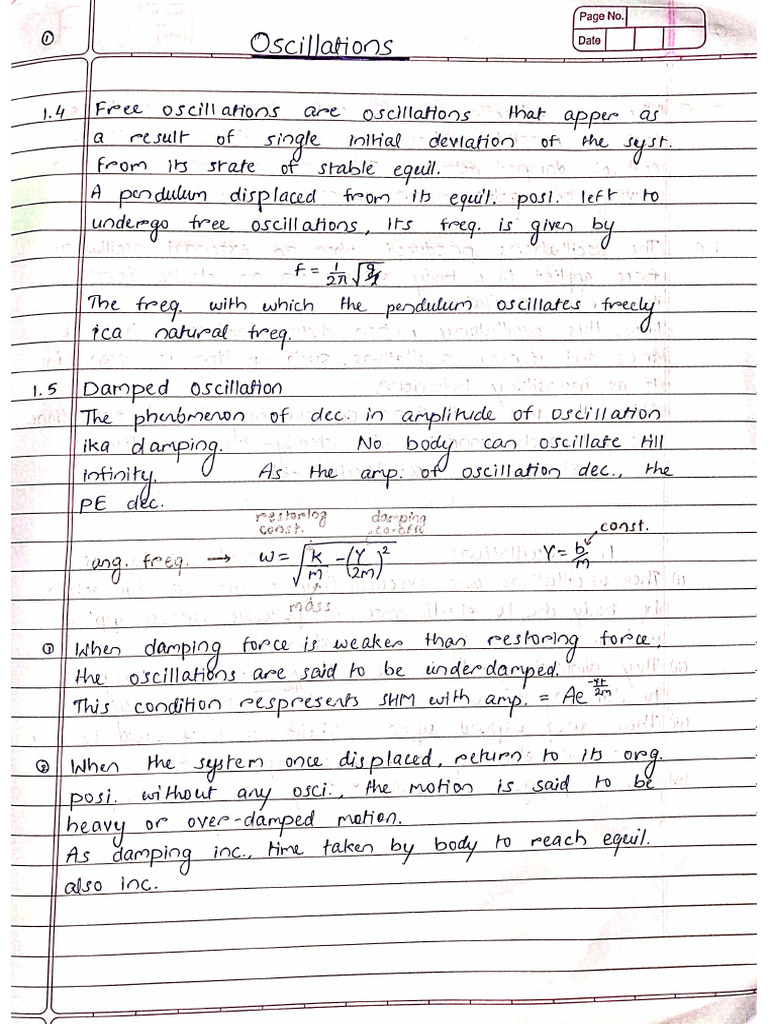 Page No.
Date
①
Oscillations
1.4 Free oscillations are oscillations that apper as
a result of single initial deviation of the syst.
from its state of stable equil.
A pendulum displaced from its equil. posi. left to
undergo free oscillations, its freq. is given by
f = 1/2π √g/l
The freq. with which the pendulum oscillates freely
ica natural freq.
1.5 Damped oscillation
The phenomenon of dec. in amplitude of oscillation
ika damping. No body can oscillate till
infinity. As the amp. of oscillation dec., the
PE dec.
restoring const. damping co-eff
const.
ang. freq. → ω = √k/m - (γ/2m)² γ = b/m
mass
① When damping force is weaker than restoring force,
the oscillations are said to be underdamped.
This condition respresents SHM with amp. = Ae^-γt/2m
② When the system once displaced, return to its org.
posi. without any osci., the motion is said to be
heavy or over-damped motion.
As damping inc., time taken by body to reach equil.
also inc.